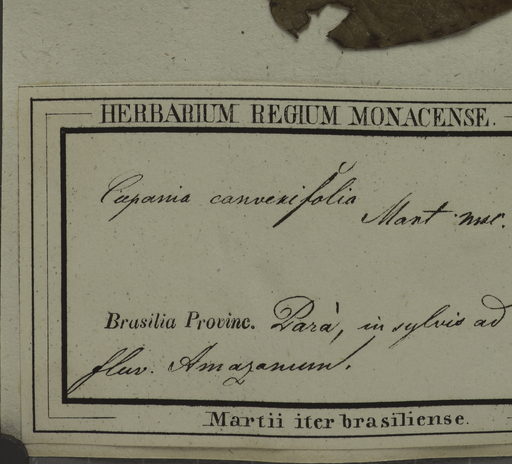 HERBARIUM REGIUM MONACENSE.
Cupania convexifolia
Mart. msc.
Brasilia Provinc. Parà, in sylvis ad
fluv. Amazonum.
Martii iter brasiliense.